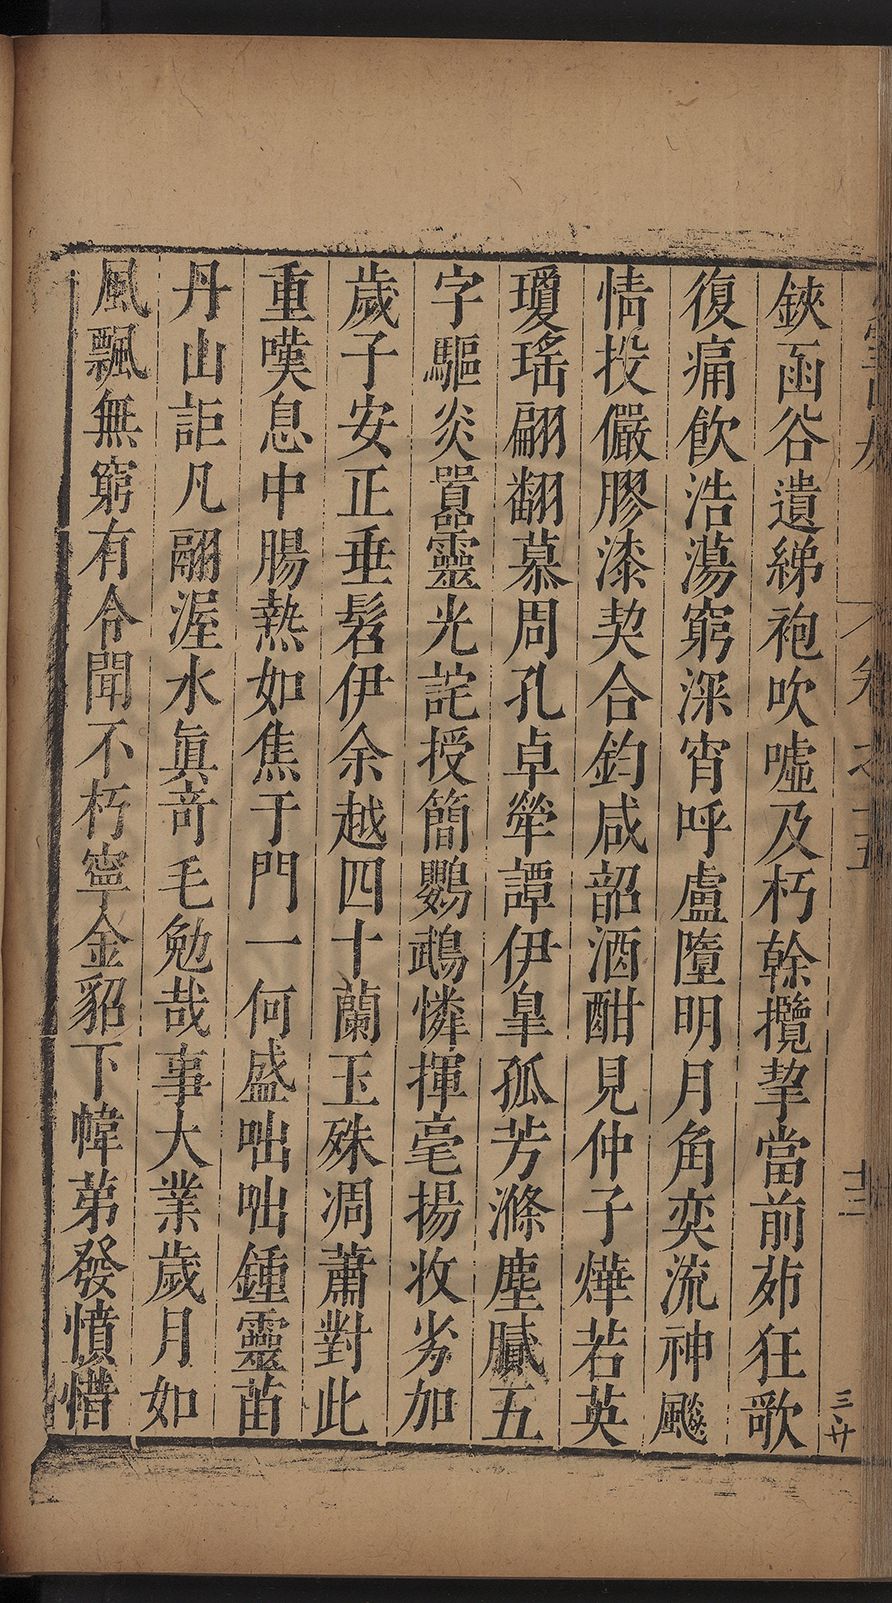 鋏函谷遺綈袍吹噓及朽榦攬挈當前茆狂歌
復痛飲浩蕩窮深宵呼盧墮明月角奕流神飈
情投儼膠漆契合鈞咸韶酒酣見仲子燁若英
瓊瑤翩翻慕周孔卓犖譚伊臯孤芳滌塵膩五
字驅炎囂靈光詫授簡鸚鵡憐揮毫揚收劣加
歲子安正垂髫伊余越四十蘭玉殊凋蕭對此
重嘆息中腸熱如焦于門一何盛咄咄鍾靈苗
丹山詎凡翮渥水真奇毛勉哉事大業歲月如
風飄無窮有令聞不朽寧金貂下幃弟發憤惜
卷之十五
三卄